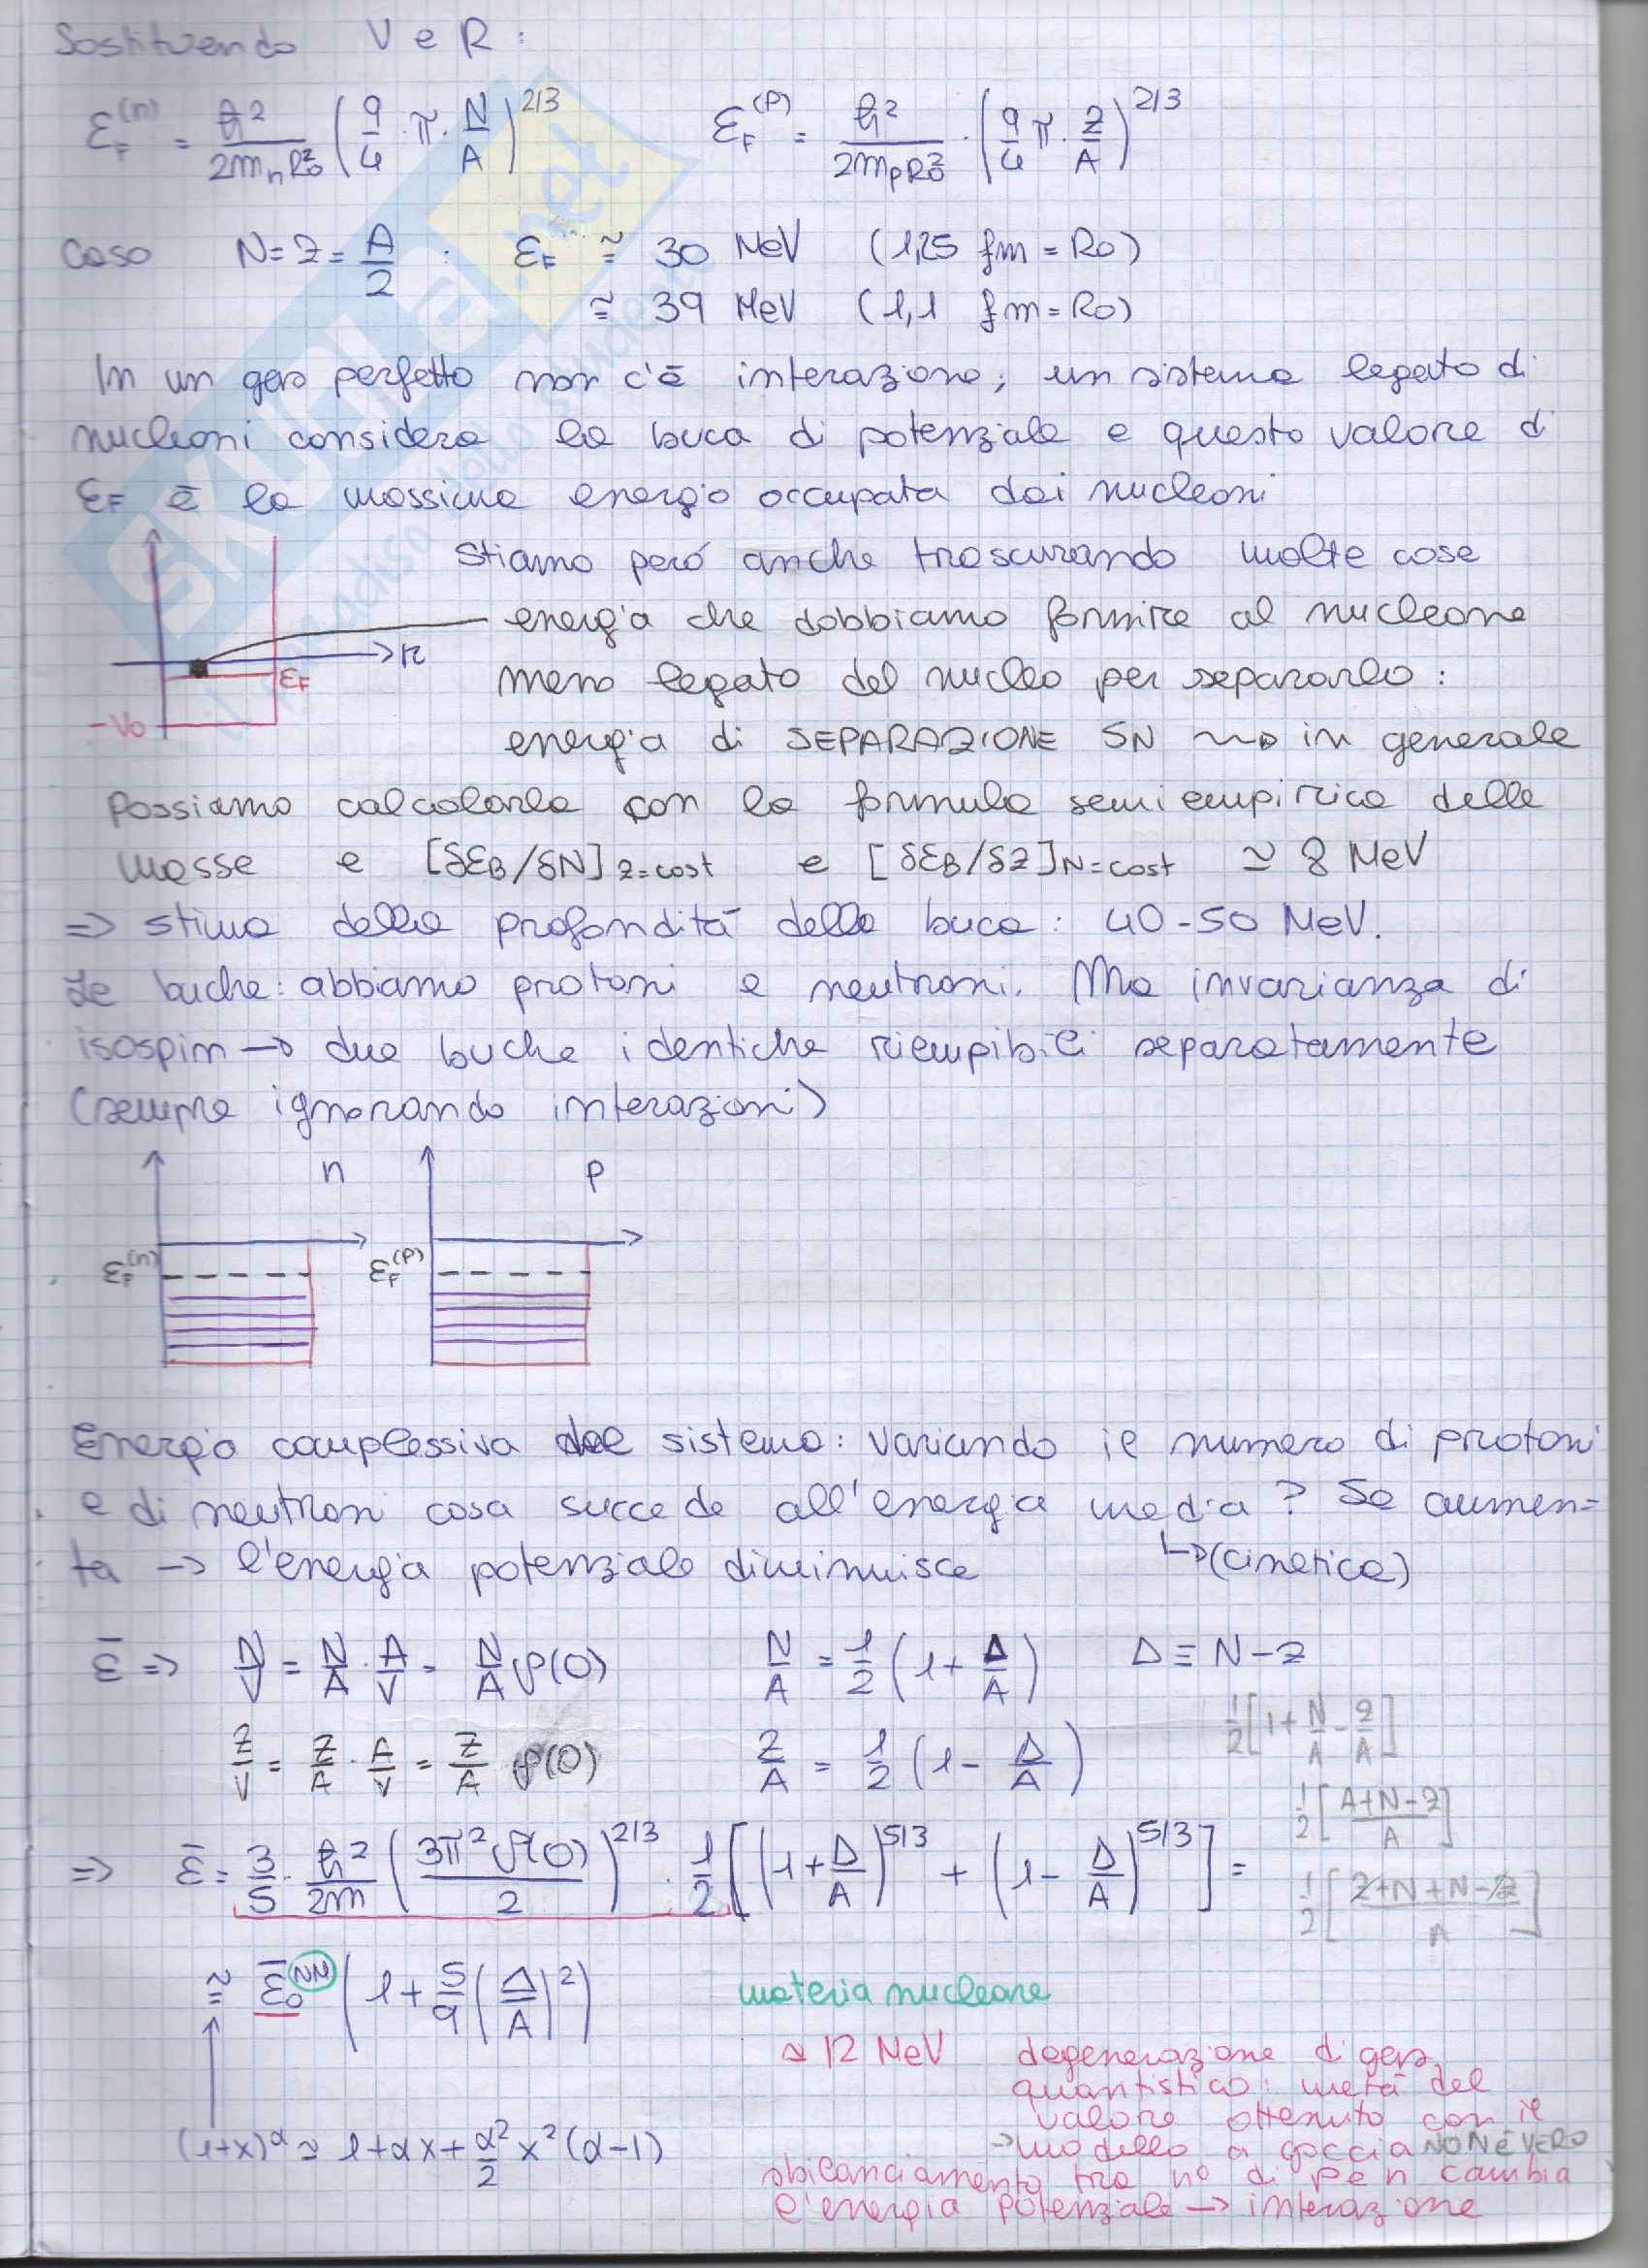 Sostituendo V e R:
ε_F^(n) = ħ²/2m_nR₀² (9/4 · π · N/A)^2/3    ε_F^(P) = ħ²/2m_pR₀² · (9/4 π · Z/A)^2/3
Caso N=Z=A/2 : ε_F ≅ 30 MeV (1,25 fm = R₀)
≅ 39 MeV (1,1 fm = R₀)
In un gas perfetto non c'è interazione; un sistema legato di
nucleoni considera la buca di potenziale e questo valore di
ε_F è la massima energia occupata dai nucleoni
Stiamo però anche trascurando molte cose
energia che dobbiamo fornire al nucleone
meno legato del nucleo per separarlo:
energia di SEPARAZIONE SN ~> in generale
r
ε_F
-V₀
possiamo calcolarla con la formula semiempirica delle
masse e [δε_B/δN]z=cost e [δε_B/δZ]N=cost ≃ 8 MeV
=> stima della profondità della buca: 40-50 MeV.
Le buche: abbiamo protoni e neutroni. Ma invarianza di
isospin -> due buche identiche riempibili separatamente
(sempre ignorando interazioni)
n    p
ε_F^(n)    ε_F^(P)
Energia complessiva del sistema: variando il numero di protoni
e di neutroni cosa succede all'energia media? Se aumen=
ta -> l'energia potenziale diminuisce    ↳(cinetica)
ε̄ => N/V = N/A · A/V = N/A ρ(0)    N/A = 1/2 (1+ Δ/A)    Δ ≡ N-Z
1/2 [1+ N/A - Z/A]
Z/V = Z/A · A/V = Z/A ρ(0)    Z/A = 1/2 (1- Δ/A)
1/2 [A+N-Z / A]
=> ε̄ = 3/5 · ħ²/2m (3π²ρ(0)/2)^2/3 · 1/2 [(1+Δ/A)^5/3 + (1- Δ/A)^5/3] =
1/2 [Z+N+N-Z / A]
≅ ε̄₀ (1+ 5/9 (Δ/A)²)    materia nucleare
≃ 12 MeV degenerazione di gas
quantistico: metà del
valore ottenuto con il
-> modello a goccia NON È VERO
(1+x)^α ≃ 1+αx+ α²/2 x² (α-1)
sbilanciamento tra n° di p e n cambia
l'energia potenziale -> interazione